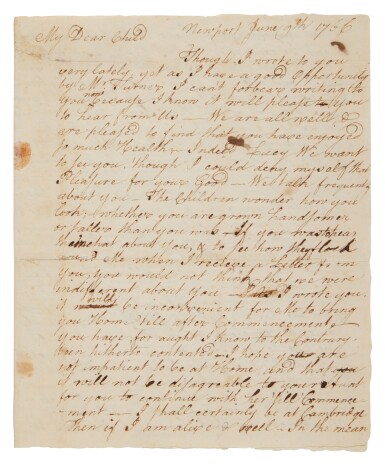 Newport June 9th 1756
My Dear Child
Though I wrote to you
very lately, yet as I have a good Opportunity
by Mr Turner I can't forbear writing to
you now because I know it will please you
to hear from Us — We are all well, &
are pleased to find that you have enjoyed
so much Health — Indeed Lucy We want
to see you, Though I could deny myself that
Pleasure for your Good — We talk frequently
about you — The Children wonder how you
look, & whether you are grown handsomer
or taller than you was — If you was to hear
them chat about you, & to see how they flock
round Me when I recieve a Letter from
you, you would not think that we were
indifferent about you — I wrote you
it will be inconvenient for Me to bring
you Home till after Commencement
you have for aught I know to the Contrary
been hitherto contented — I hope you are
not impatient to be at Home, and that
it will not be disagreable to your Aunt
for you to continue with her till Commence
-ment — I shall certainly be at Cambridge
then if I am alive & well — In the mean